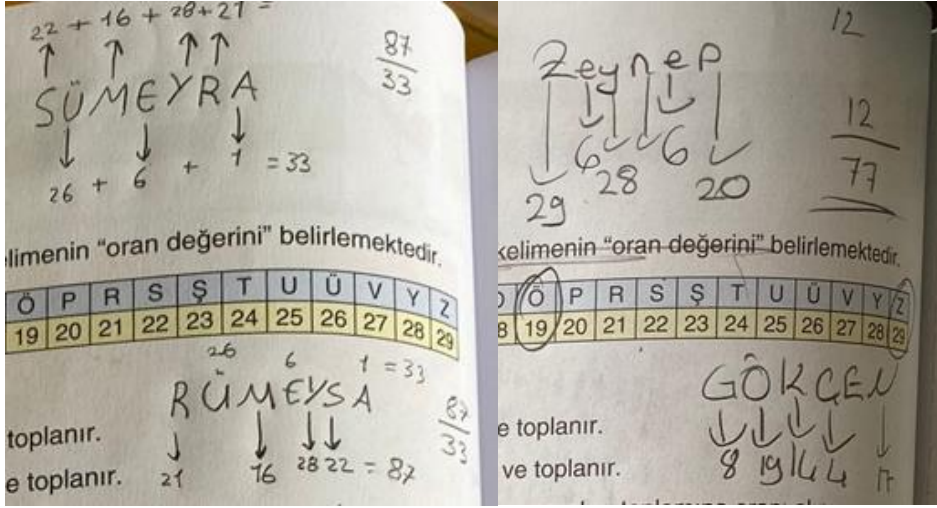 22 + 16 + 28 + 21 =
SÜMEYRA
87
33
26 + 6 + 1 = 33
limenin “oran değerini” belirlemektedir.
Ö P R S Ş T U Ü V Y Z
19 20 21 22 23 24 25 26 27 28 29
26 6 1 = 33
RÜMEYSA
87
33
toplanır.
e toplanır.
21 16 28 22 = 87
12
Zeynep
12
77
6 6
28
29 20
kelimenin “oran değerini” belirlemektedir.
Ö P R S Ş T U Ü V Y Z
8 19 20 21 22 23 24 25 26 27 28 29
GÖKÇEN
e toplanır.
ve toplanır.
8 19 14 4 17